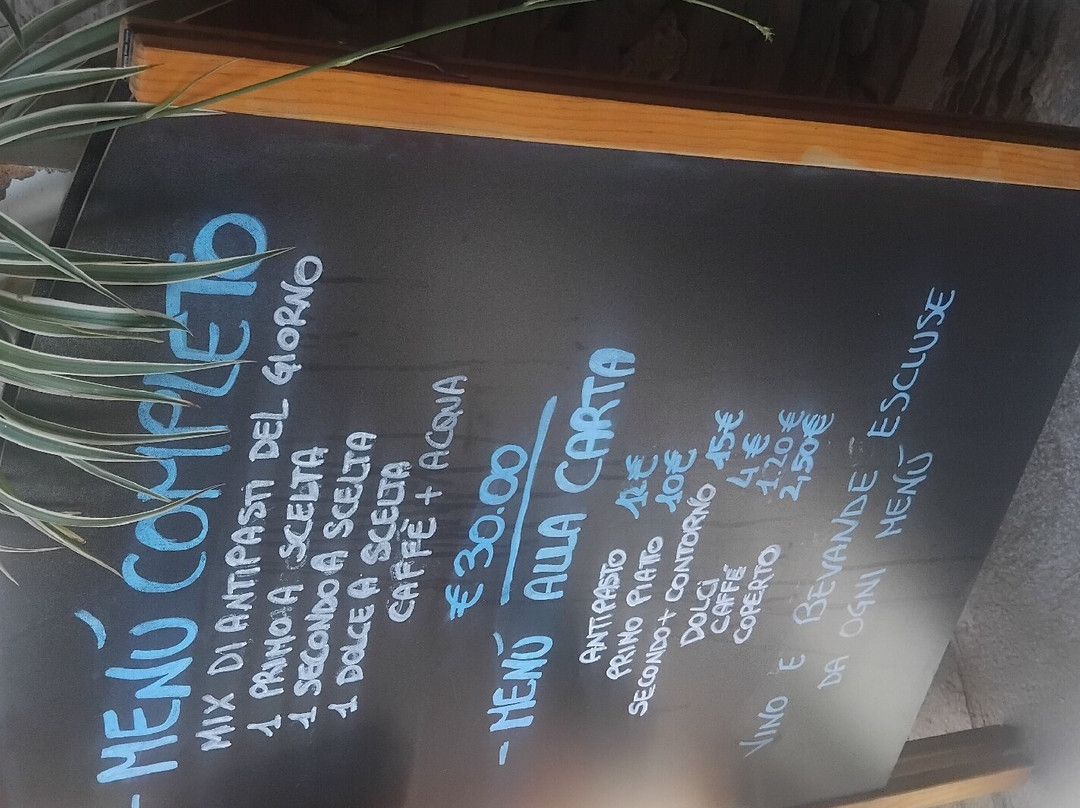 - MENÚ COMPLETO
MIX DI ANTIPASTI DEL GIORNO
1 PRIMO A SCELTA
1 SECONDO A SCELTA
1 DOLCE A SCELTA
CAFFÈ + ACQUA
€ 30.00
- MENÙ ALLA CARTA
ANTIPASTO
PRIMO PIATTO 10€
SECONDO + CONTORNO 15€
DOLCI 4€
CAFFÈ 1,20€
COPERTO 2,50€
VINO E BEVANDE ESCLUSE
DA OGNI MENÙ